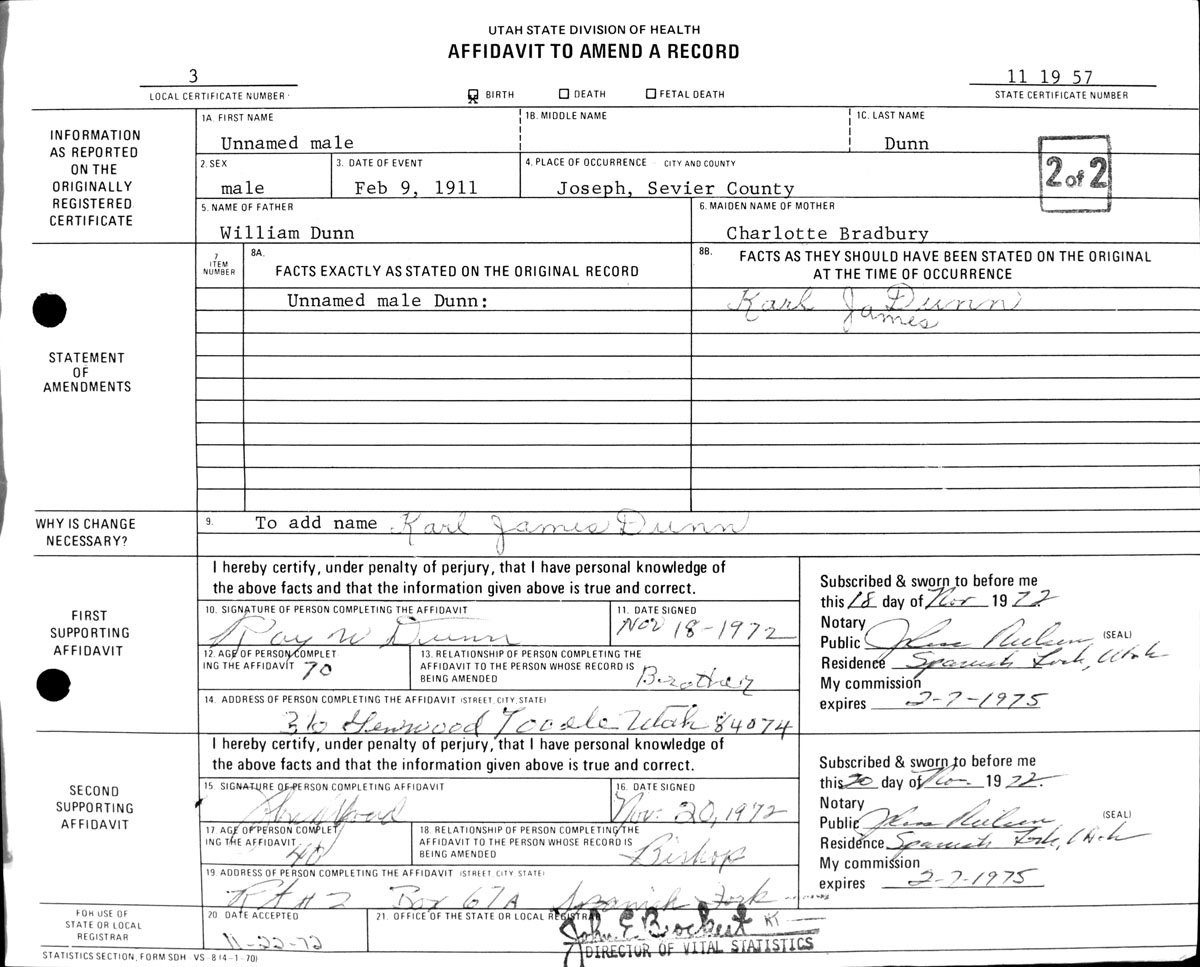 UTAH STATE DIVISION OF HEALTH
AFFIDAVIT TO AMEND A RECORD
3
LOCAL CERTIFICATE NUMBER
BIRTH DEATH FETAL DEATH
11 19 57
STATE CERTIFICATE NUMBER
INFORMATION
AS REPORTED
ON THE
ORIGINALLY
REGISTERED
CERTIFICATE
1A. FIRST NAME
Unnamed male
1B. MIDDLE NAME
1C. LAST NAME
Dunn
2. SEX
male
3. DATE OF EVENT
Feb 9, 1911
4. PLACE OF OCCURRENCE - CITY AND COUNTY
Joseph, Sevier County
2 of 2
5. NAME OF FATHER
William Dunn
6. MAIDEN NAME OF MOTHER
Charlotte Bradbury
STATEMENT
OF
AMENDMENTS
7
ITEM
NUMBER
8A.
FACTS EXACTLY AS STATED ON THE ORIGINAL RECORD
8B.
FACTS AS THEY SHOULD HAVE BEEN STATED ON THE ORIGINAL
AT THE TIME OF OCCURRENCE
Unnamed male Dunn:
Karl Ja Dunn
James
WHY IS CHANGE
NECESSARY?
9. To add name Karl James Dunn
FIRST
SUPPORTING
AFFIDAVIT
I hereby certify, under penalty of perjury, that I have personal knowledge of
the above facts and that the information given above is true and correct.
10. SIGNATURE OF PERSON COMPLETING THE AFFIDAVIT
Ray W Dunn
11. DATE SIGNED
Nov 18-1972
12. AGE OF PERSON COMPLET
ING THE AFFIDAVIT 70
13. RELATIONSHIP OF PERSON COMPLETING THE
AFFIDAVIT TO THE PERSON WHOSE RECORD IS
BEING AMENDED
Brother
14. ADDRESS OF PERSON COMPLETING THE AFFIDAVIT (STREET, CITY, STATE)
Tooele Utah 84074
Subscribed & sworn to before me
this 18 day of Nov 1972
Notary
Public John Nielsen (SEAL)
Residence Spanish Fork, Utah
My commission
expires 2-7-1975
SECOND
SUPPORTING
AFFIDAVIT
I hereby certify, under penalty of perjury, that I have personal knowledge of
the above facts and that the information given above is true and correct.
15. SIGNATURE OF PERSON COMPLETING AFFIDAVIT
16. DATE SIGNED
Nov. 20, 1972
17. AGE OF PERSON COMPLET
ING THE AFFIDAVIT 40
18. RELATIONSHIP OF PERSON COMPLETING THE
AFFIDAVIT TO THE PERSON WHOSE RECORD IS
BEING AMENDED
Bishop
19. ADDRESS OF PERSON COMPLETING THE AFFIDAVIT (STREET, CITY, STATE)
Rt # 2 Box 67A Spanish Fork
Subscribed & sworn to before me
this 20 day of Nov. 1972.
Notary
Public John Nielsen (SEAL)
Residence Spanish Fork, Utah
My commission
expires 2-7-1975
FOR USE OF
STATE OR LOCAL
REGISTRAR
20. DATE ACCEPTED
11-22-72
21. OFFICE OF THE STATE OR LOCAL REGISTRAR
John E. Brockert
DIRECTOR OF VITAL STATISTICS
STATISTICS SECTION, FORM SDH VS-8 (4-1-70)